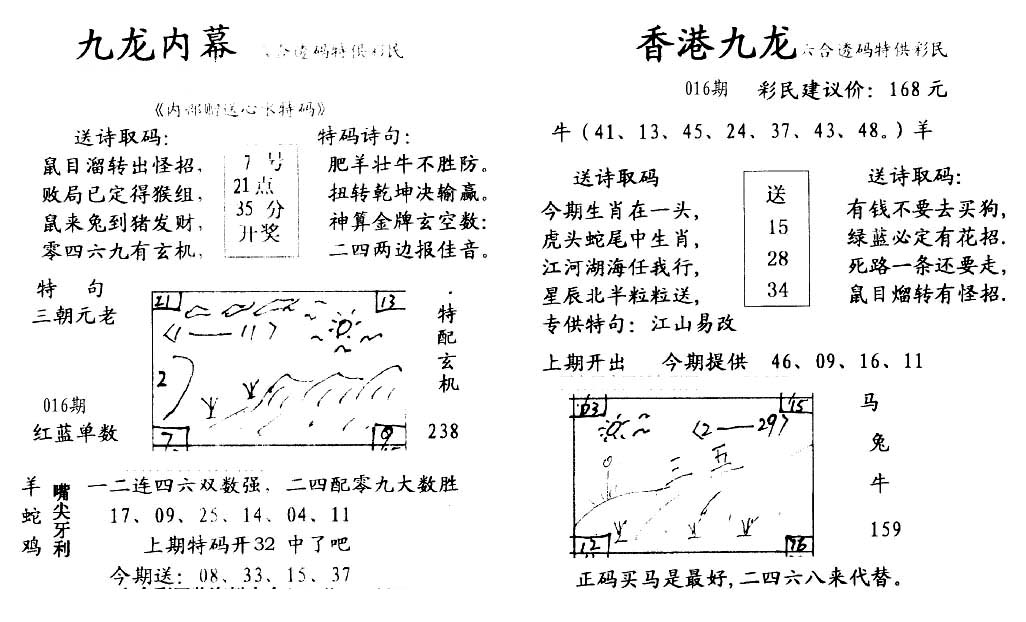 九龙内幕 合透码特供彩民
《内部赠送心水特码》
送诗取码：
鼠目溜转出怪招，
败局已定得猴组，
鼠来兔到猪发财，
零四六九有玄机，
7 号
21点
35 分
开奖
特码诗句：
肥羊壮牛不胜防。
扭转乾坤决输赢。
神算金牌玄空数：
二四两边报佳音。
特 句
三朝元老
016期
红蓝单数
21 13
〈1——11〉
2
7 9
特配玄机
238
羊
蛇
鸡
嘴尖牙利
一二连四六双数强，二四配零九大数胜
17、09、25、14、04、11
上期特码开32 中了吧
今期送：08、33、15、37
香港九龙 六合透码特供彩民
016期 彩民建议价：168 元
牛（41、13、45、24、37、43、48。）羊
送诗取码
今期生肖在一头，
虎头蛇尾中生肖，
江河湖海任我行，
星辰北半粒粒送，
专供特句：江山易改
送
15
28
34
送诗取码：
有钱不要去买狗，
绿蓝必定有花招.
死路一条还要走，
鼠目熘转有怪招.
上期开出 今期提供 46、09、16、11
03 15
〈2——29〉
三 五
12
马
兔
牛
159
正码买马是最好，二四六八来代替。